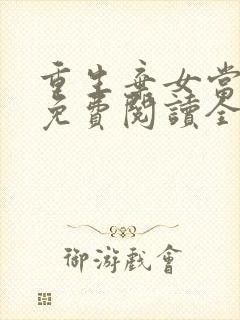 重生棄女當
免費閱讀全
御游戲會